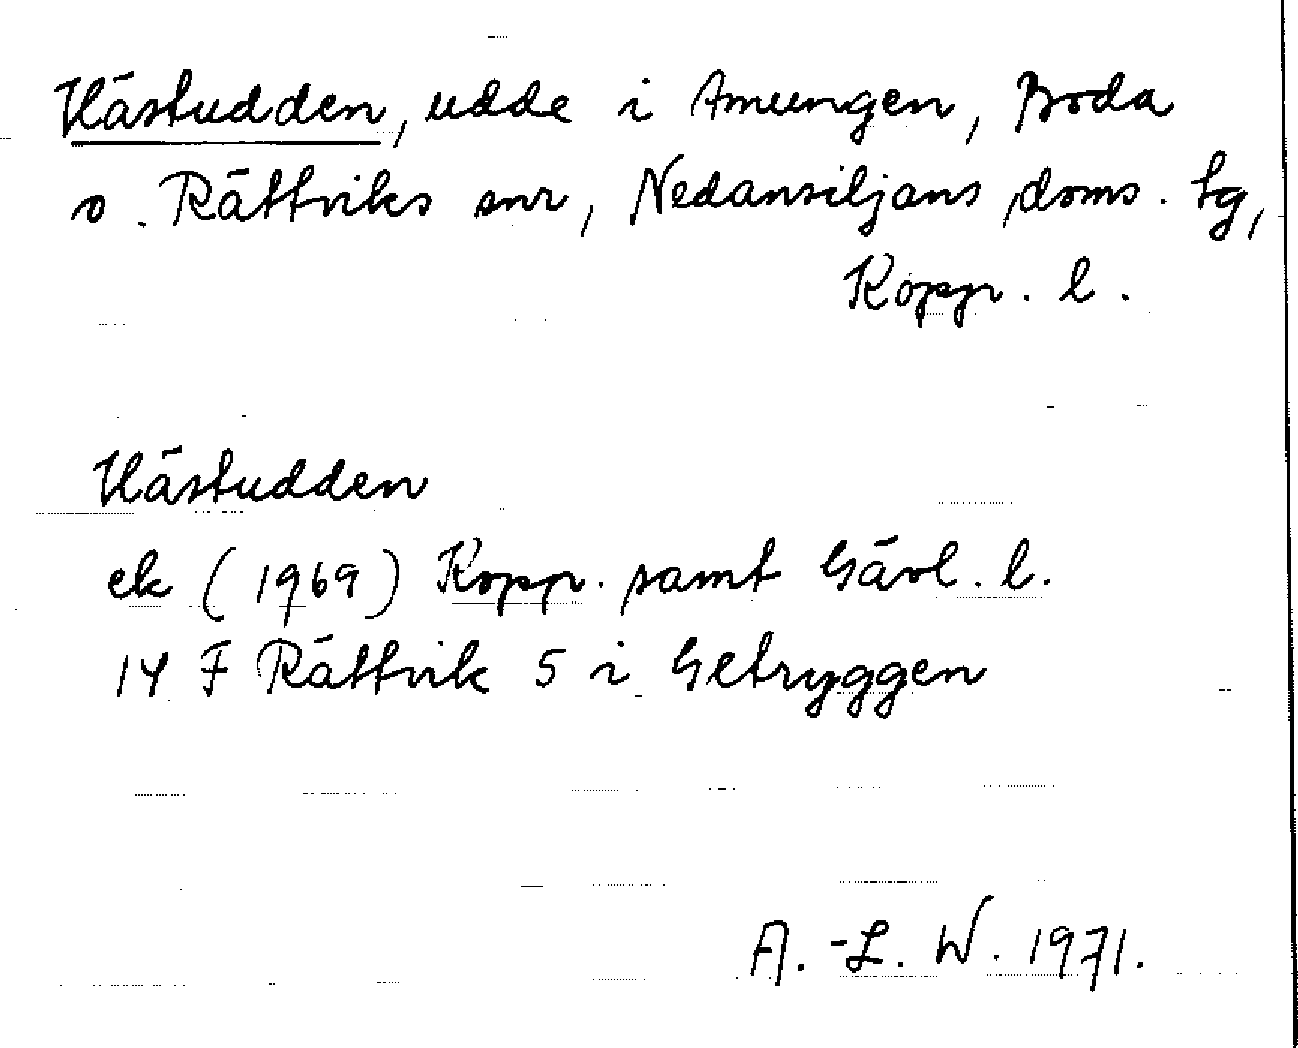 Hästudden, udde i Amungen, Boda
o. Rättviks snr, Nedansiljans doms. tg,
Kopp. l.
Hästudden
ek (1969) Kopp. samt Gävl. l.
14 F Rättvik 5 i Getryggen
A.-L. W. 1971.